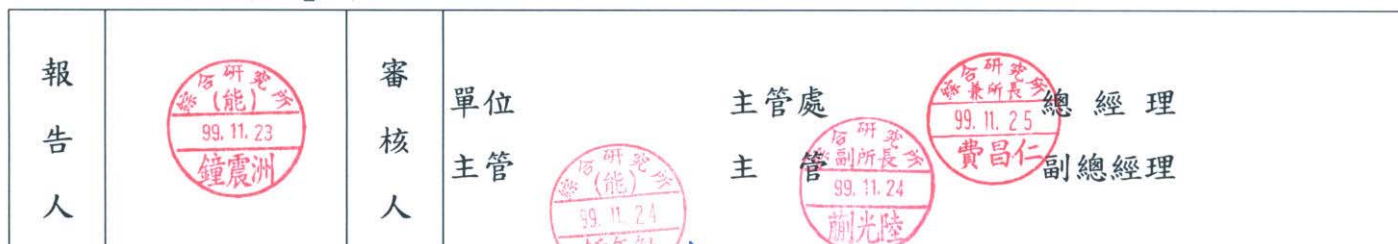 報告人
綜合研究所
(能)
99.11.23
鐘震洲
審核人
單位
主管
綜合研究所
(能)
99.11.24
主管處
主管
綜合研究所
副所長
99.11.24
光陸
綜合研究所
兼所長
99.11.25
費昌仁
總經理
副總經理